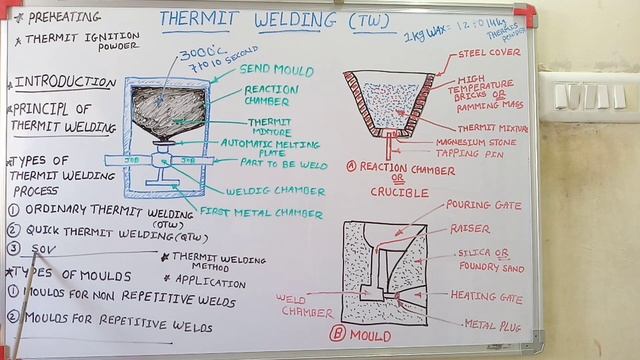 THERMIT WELDING (TW)
* PREHEATING
* THERMIT IGNITION
POWDER
* INTRODUCTION
* PRINCIPL OF
THERMIT WELDING
* TYPES OF
THERMIT WELDING
PROCESS
① ORDINARY THERMIT WELDING
(OTW)
② QUICK THERMIT WELDING (QTW)
③ SOV
* TYPES OF MOULDS
① MOULDS FOR NON REPETITIVE WELDS
② MOULDS FOR REPETITIVE WELDS
* THERMIT WELDING
METHOD
* APPLICATION
3000°C
7 TO 10 SECOND
SEND MOULD
REACTION
CHAMBER
THERMIT
MIXTURE
AUTOMATIC MELTING
PLATE
PART TO BE WELD
JOB
JOB
WELDIG CHAMBER
FIRST METAL CHAMBER
1 KG WAX =
THERMIT
STEEL COVER
HIGH
TEMPERATURE
BRICKS OR
RAMMING MASS
THERMIT MIXTURE
MAGNESIUM STONE
TAPPING PIN
Ⓐ REACTION CHAMBER
OR
CRUCIBLE
POURING GATE
RAISER
SILICA OR
FOUNDRY SAND
HEATING GATE
METAL PLUG
WELD
CHAMBER
Ⓑ MOULD